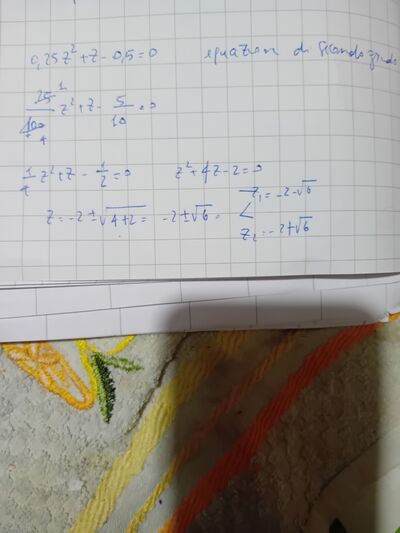 0,25z² + z - 0,5 = 0 equazion di secondo grado
25¹/100₄ z² + z - 5/10 = 0
1/4 z² + z - 1/2 = 0 z² + 4z - 2 = 0
z = -2 ± √4+2 = -2 ± √6 = z₁ = -2-√6
z₂ = -2+√6